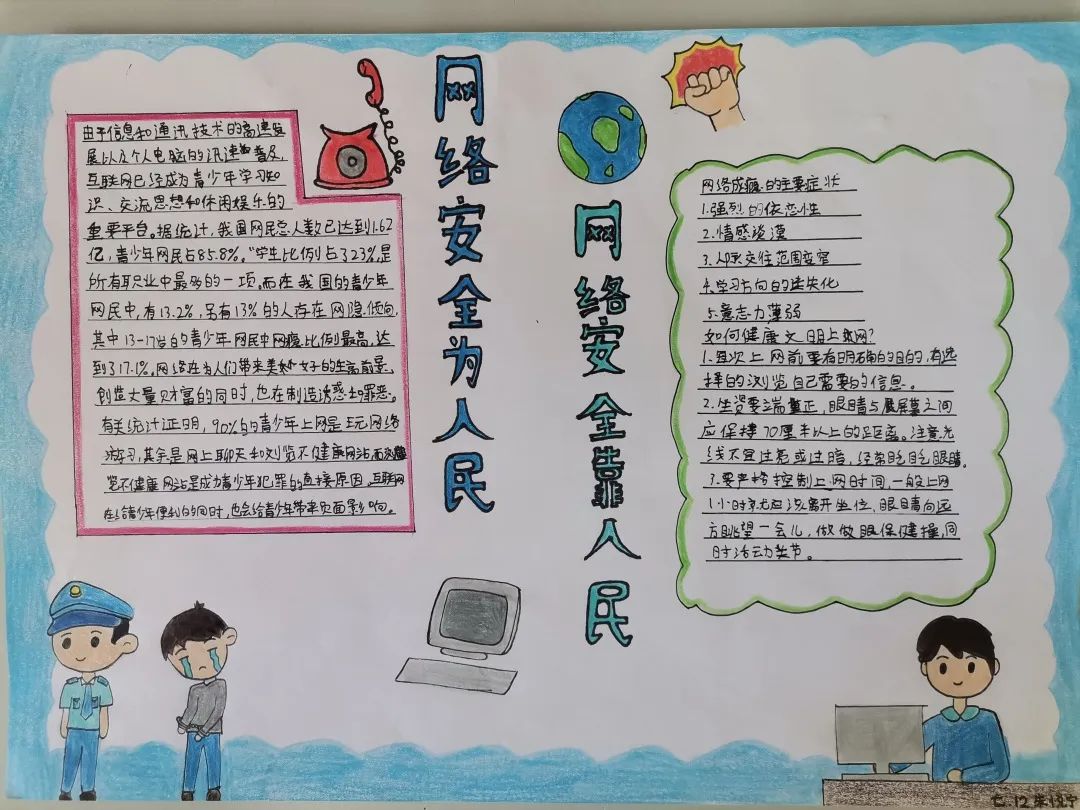 网络安全为人民
网络安全靠人民
由于信息和通讯技术的高速发
展以及个人电脑的迅速普及,
互联网已经成为青少年学习知
识、交流思想和休闲娱乐的
重要平台。据统计,我国网民总人数已达到1.62
亿,青少年网民占85.8%。"学生比例占323%,是
所有职业中最多的一项。而在我国的青少年
网民中,有13.2%,另有13%的人存在网隐倾向,
其中13-17岁的青少年网民中网瘾比例最高,达
到17.1%。网络在为人们带来美好的生活前景、
创造大量财富的同时,也在制造诱惑和罪恶。
有关统计证明,90%的青少年上网是玩网络
游习,其余是网上聊天和浏览不健康网站,而浏
览不健康网站是成为青少年犯罪的直接原因,互联网
在给青少年便利的同时,也会给青少年带来负面影响。
网络成瘾的主要症状
1.强烈的依恋性
2.情感淡漠
3.人际交往范围变窄
4.学习方向的迷失化
5.意志力薄弱
如何健康文明上网?
1.每次上网前要有明确的目的,有选
择的浏览自己需要的信息。
2.坐姿要端正,眼睛与屏幕之间
应保持70厘米以上的距离。注意光
线不宜过亮或过暗,经常眨眨眼睛。
3.要严格控制上网时间,一般上网
1小时就应该离开坐位,眼睛向远
方眺望一会儿,做做眼保健操,同
时活动关节。